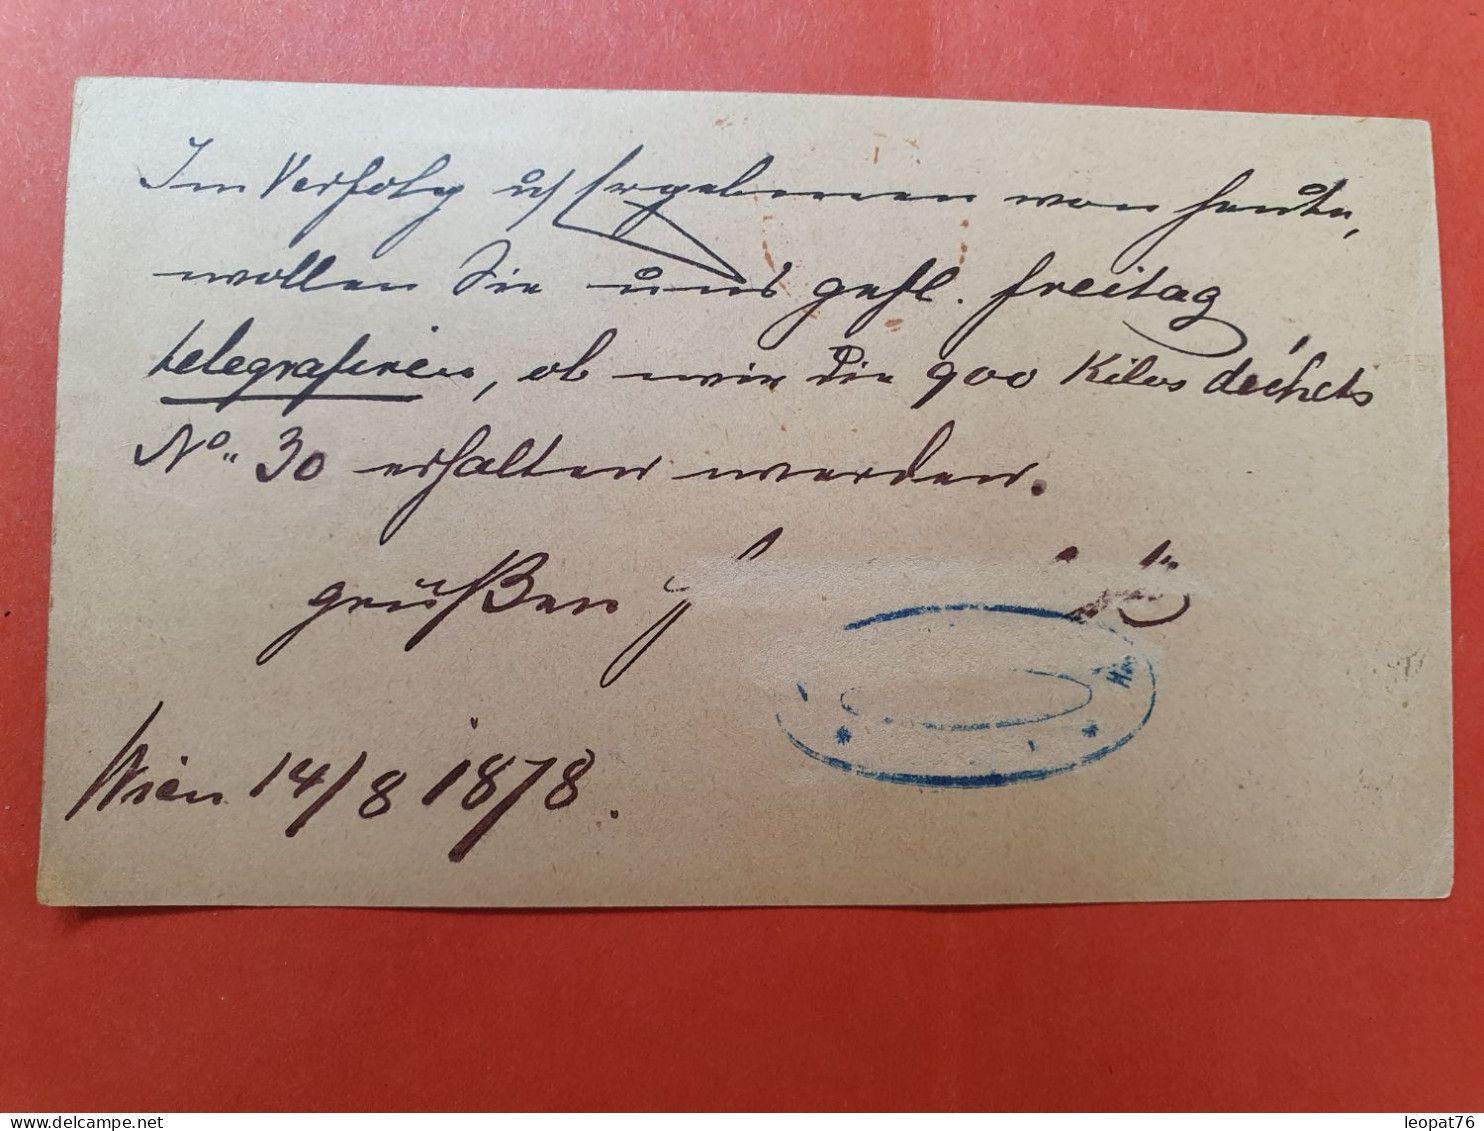 Im Verfolg u/ Ergebenen von heute,
wollen Sie uns gefl. Freitag
telegrafiren, ob wir die 900 Kilos déchets
No. 30 erhalten werden.
grüßen
Wien 14/8 1878.
leopat76